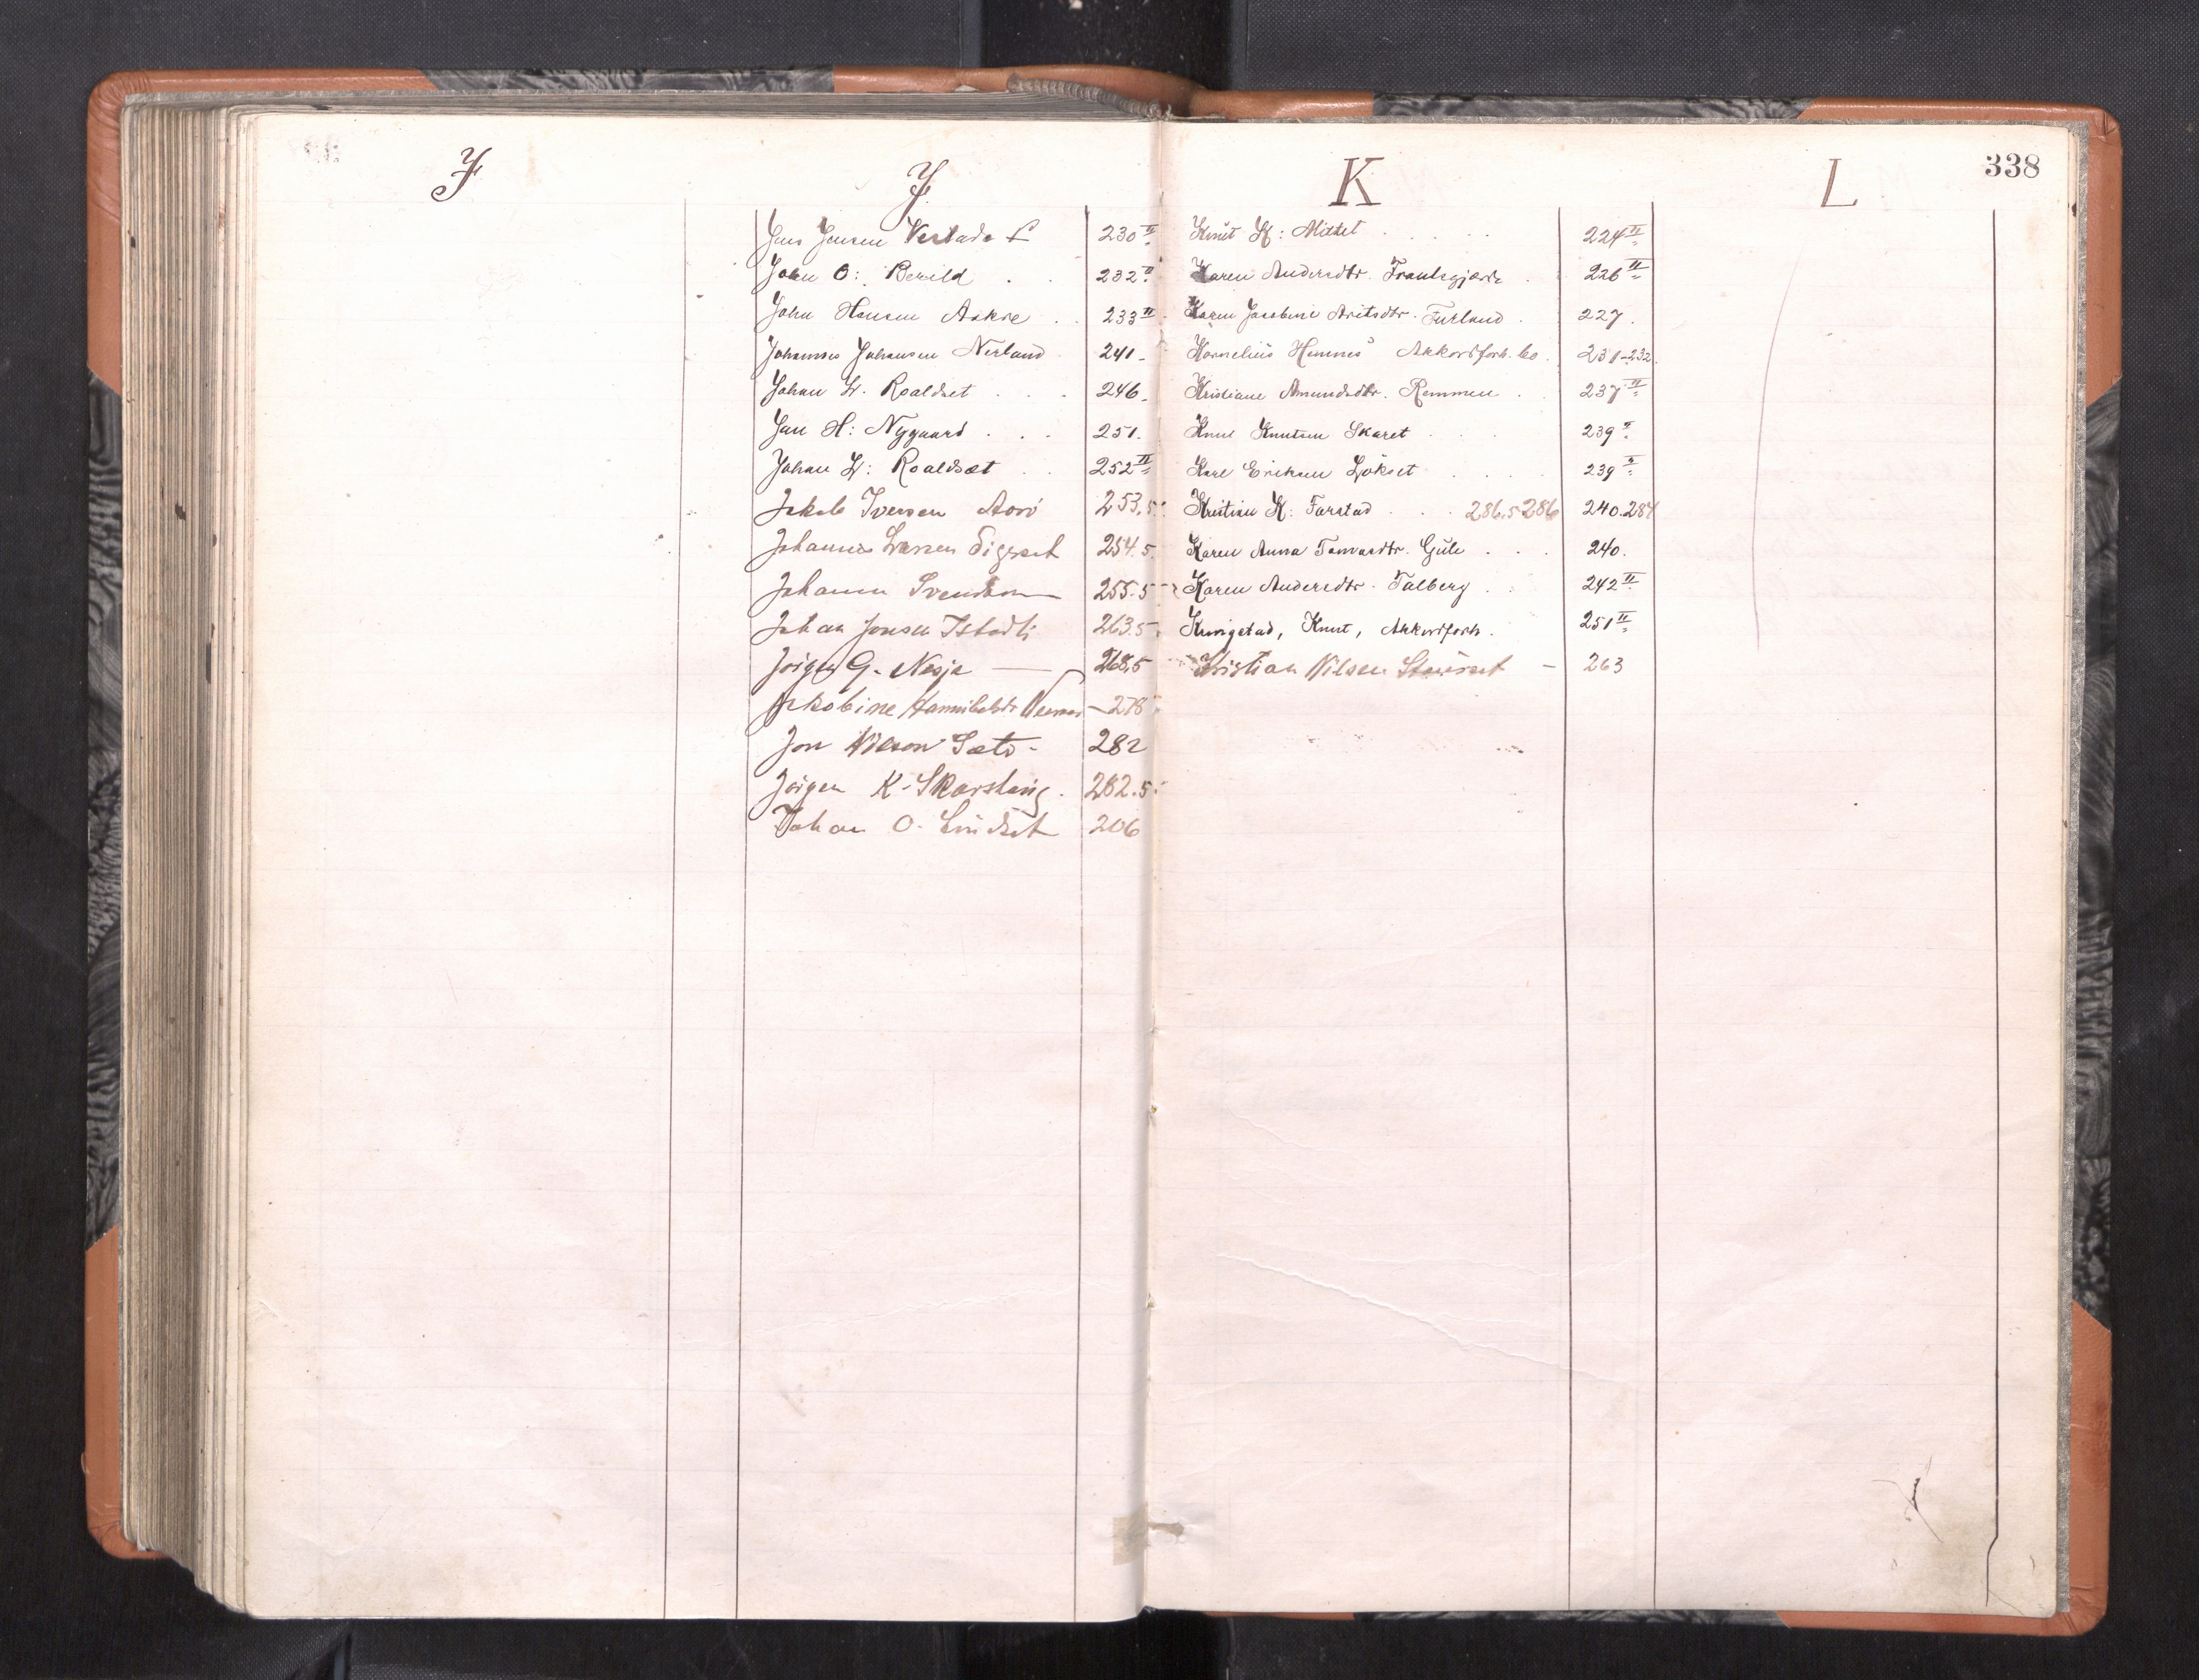 J
J.
Jens Jensen Vestad
230 II
John O: Berild . .
232 II
John Hansen Aakre . .
233 II
Johannes Johansen Nerland
241 -
Johan L. Roaldset . . .
246 -
Jan H: Nygaard . . .
251.
Johan L: Roaldsæt . .
252 II
Jakob Iversen
253.5
Johannes Larsen Digeset
254.5
Johannes Svendsen
255.5
Johan Jonsen Istadli
263.5
Jörgen G. Nesja —
268,5
Jakobine Hannibalsdtr
- 278
Jon Nilson Sæto -
282
Jörgen K. Skorsteng.
282.5
Johan O. Lindset
206
K
338
Knut K: Mittet . . . .
224 II
Karen Andersdtr. Frantsgjærde .
226 II
Karen Jacobine Aritsdtr. Furland .
227.
Kornelius Hemnes Akkordforh. bo.
231-232.
Kristiane Amundsdtr. Remmen .
237 II
Knut Knutsen Skaret . . .
239 II
Karl Eriksen Lökset . . . .
239 II
Kristian K: Farstad . . . 286.5 286
240.284
Karen Anna Tomasdtr. Gule . . .
240.
Karen Andersdtr. Talberg . .
242 II
Kringstad, Knut, Akkordforh.
251 II
Kristian Nilsen -
263
L